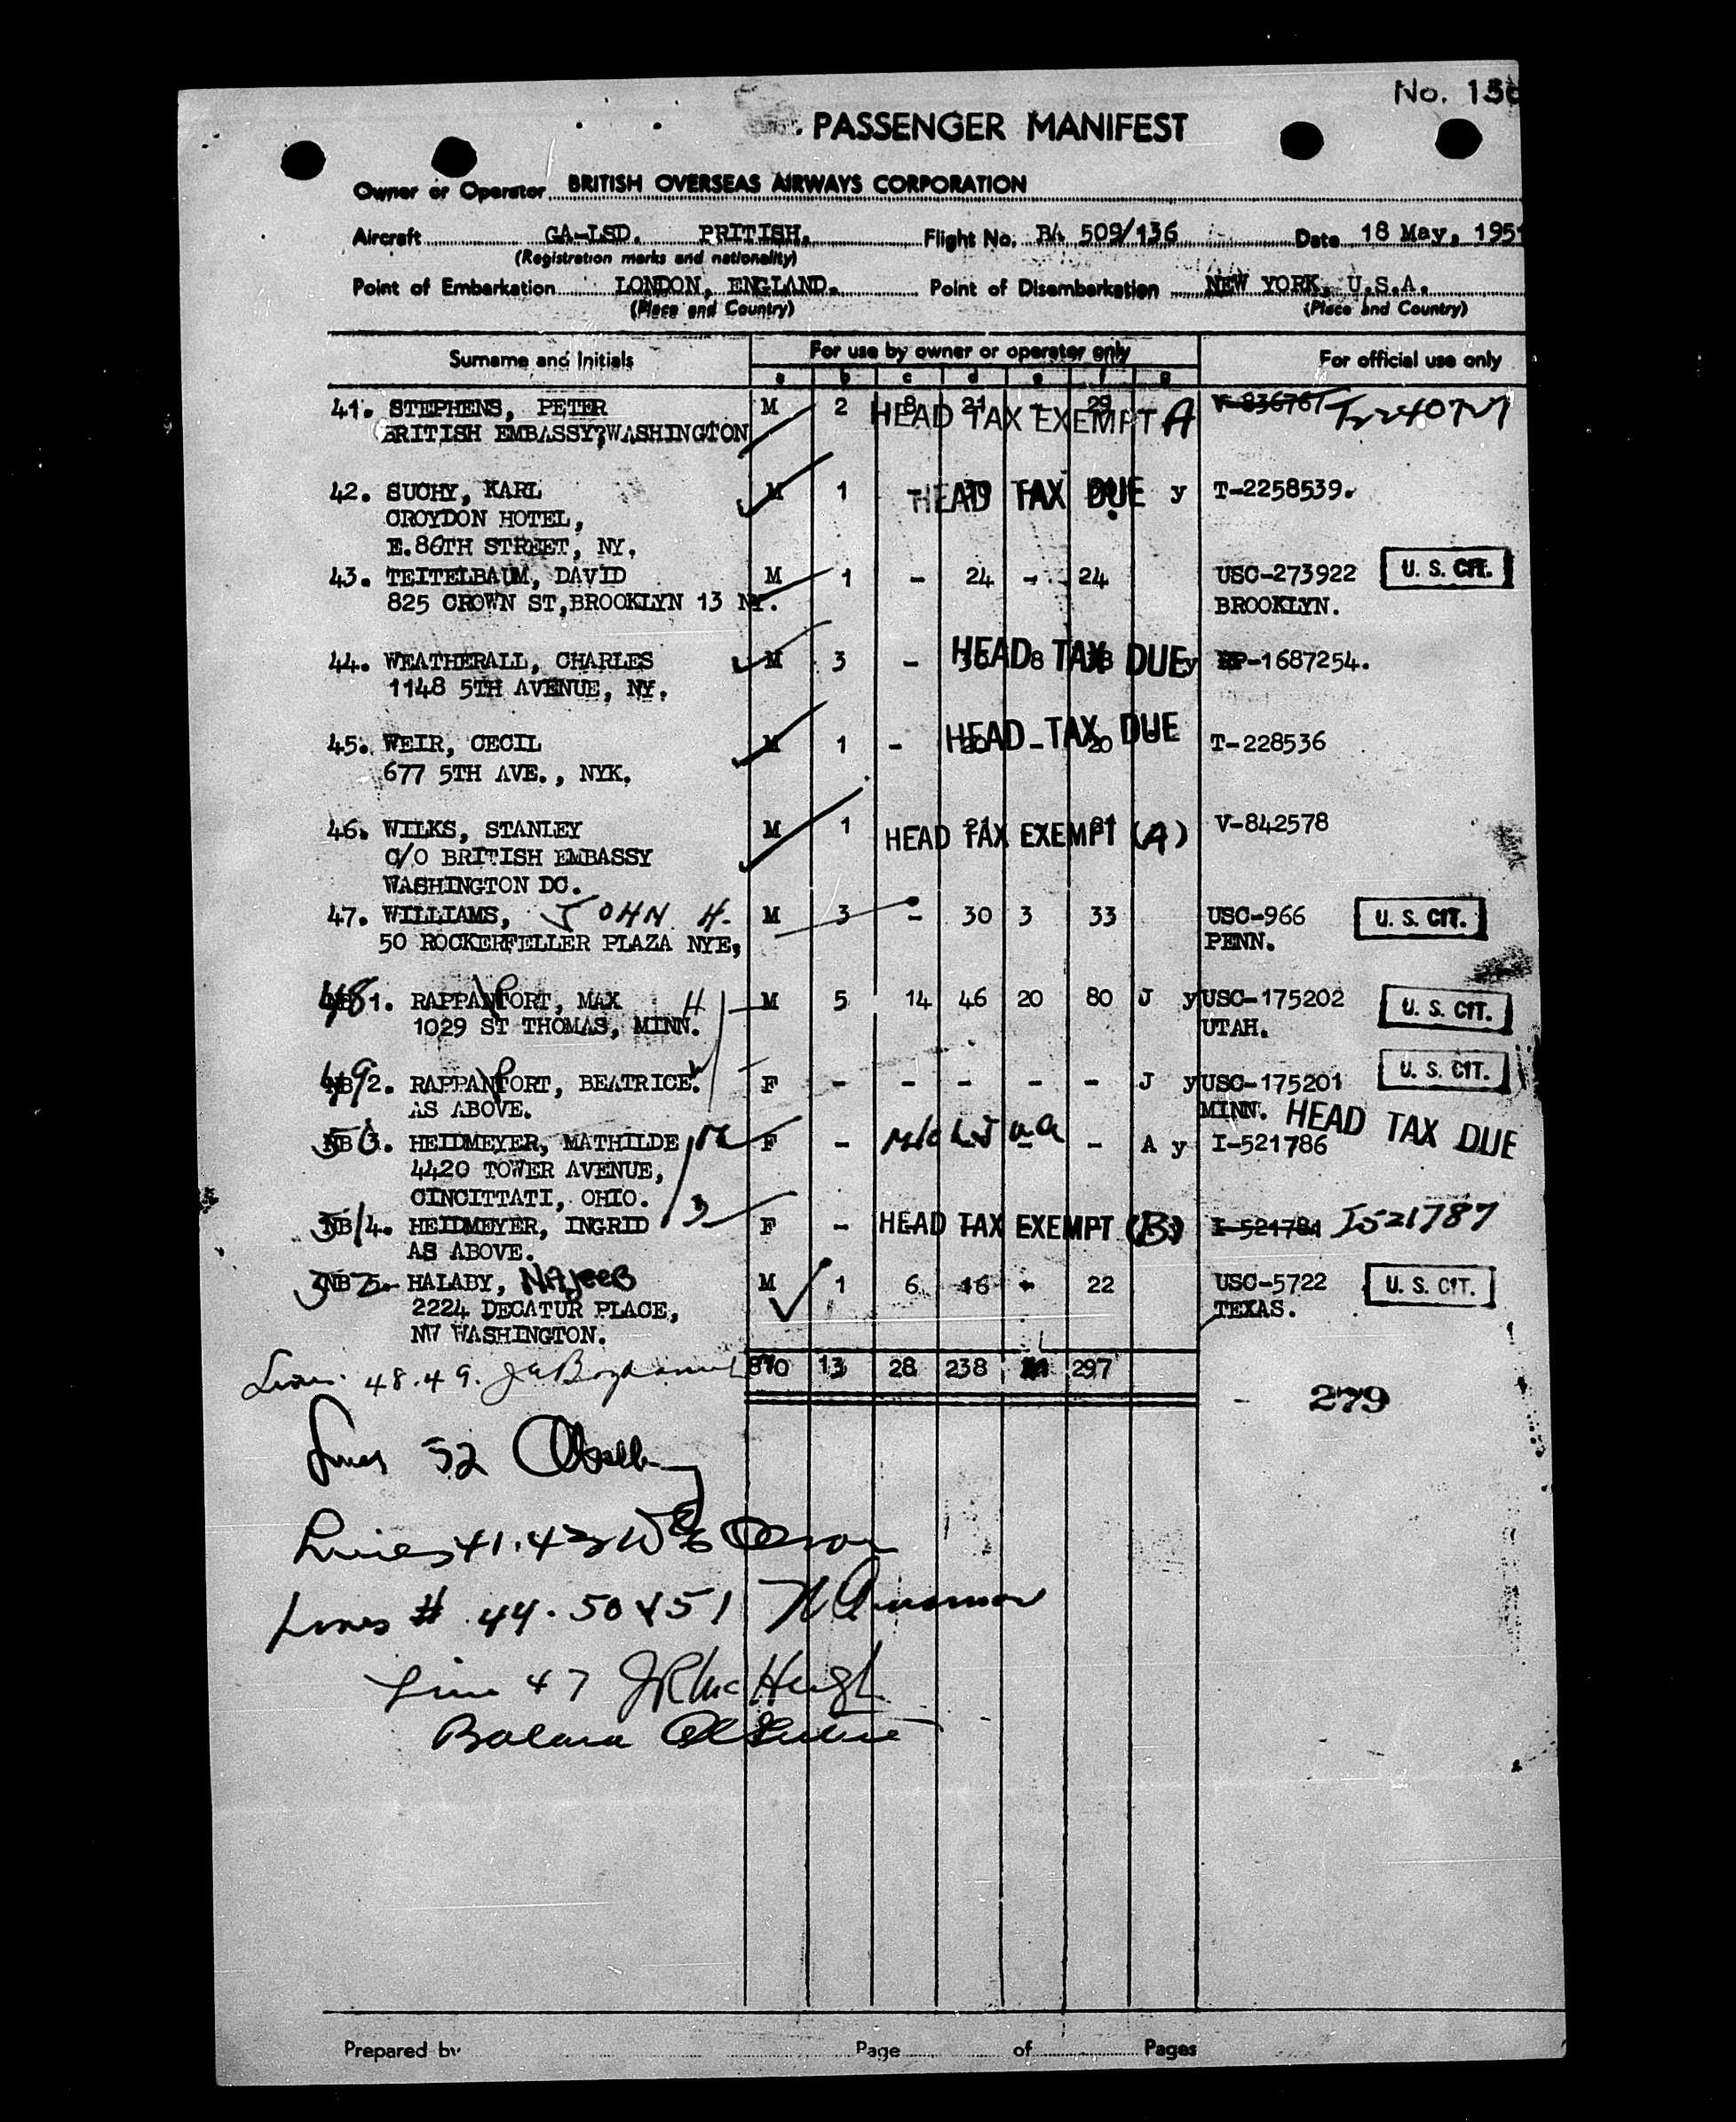 No. 13
PASSENGER MANIFEST
Owner or Operator BRITISH OVERSEAS AIRWAYS CORPORATION
Aircraft GA-LSD. PRITISH. Flight No. BA 509/136 Date 18 May, 1951
(Registration marks and nationality)
Point of Embarkation LONDON, ENGLAND. Point of Disembarkation NEW YORK, U.S.A.
(Place and Country) (Place and Country)
Surname and Initials For use by owner or operator only For official use only
a b c d e f g
41. STEPHENS, PETER M 2 8 21 - 29 HEAD TAX EXEMPT A V-836761
BRITISH EMBASSY?WASHINGTON
42. SUCHY, KARL M 1 - HEAD TAX DUE y T-2258539.
CROYDON HOTEL,
E.86TH STREET, NY.
43. TEITELBAUM, DAVID M 1 - 24 - 24 USC-273922 U. S. CIT.
825 CROWN ST,BROOKLYN 13 NY. BROOKLYN.
44. WEATHERALL, CHARLES M 3 - HEAD 8 TAX DUE y P-1687254.
1148 5TH AVENUE, NY.
45. WEIR, CECIL M 1 - 20 - 20 HEAD TAX DUE T-228536
677 5TH AVE., NYK.
46. WILKS, STANLEY M 1 HEAD TAX EXEMPT (A) V-842578
C/O BRITISH EMBASSY
WASHINGTON DC.
47. WILLIAMS, JOHN H. M 3 - 30 3 33 USC-966 U. S. CIT.
50 ROCKERFELLER PLAZA NYE, PENN.
48 1. RAPPAPORT, MAX H M 5 14 46 20 80 J y USC-175202 U. S. CIT.
1029 ST THOMAS, MINN. UTAH.
49 2. RAPPAPORT, BEATRICE. F - - - - - J y USC-175201 U. S. CIT.
AS ABOVE. MINN. HEAD TAX DUE
50 3. HEIDMEYER, MATHILDE F - - - A y I-521786
4420 TOWER AVENUE,
CINCITTATI, OHIO.
51 NB 4. HEIDMEYER, INGRID F - HEAD TAX EXEMPT (B) I-521781 I521787
AS ABOVE.
52 NB 5. HALABY, NAJEEB M 1 6 16 - 22 USC-5722 U. S. CIT.
2224 DECATUR PLACE, TEXAS.
NW WASHINGTON.
870 13 28 238 297
Lines 48.49.
279
Lines 52
Lines 41.43
Lines # 44.50 & 51
Line 47 JR McHugh
Prepared by Page of Pages